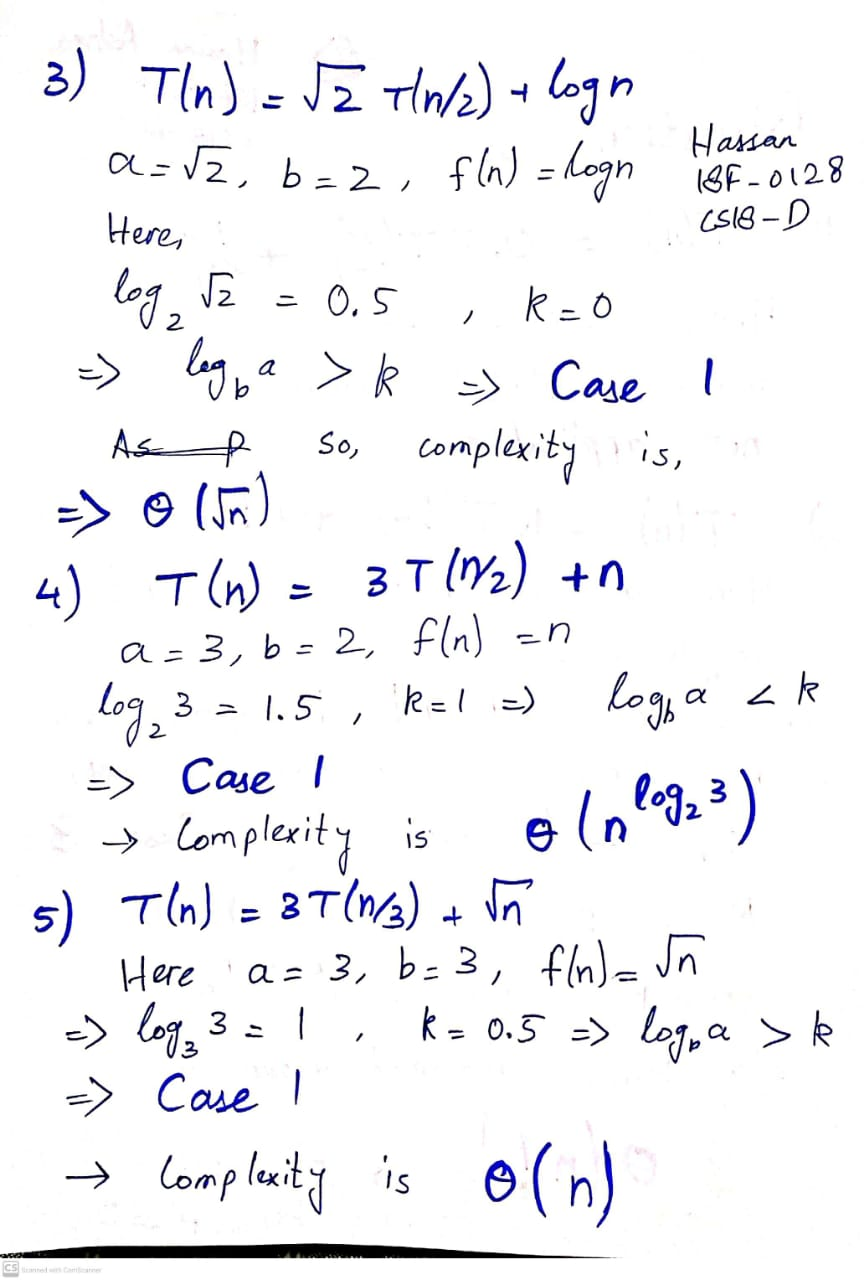 3) T(n) = √2 T(n/2) + logn
a = √2, b = 2, f(n) = logn
Hassan
18F-0128
CS18-D
Here,
log₂ √2 = 0.5 , k = 0
=> log_b a > k => Case 1
As So, complexity is,
=> Θ(√n)
4) T(n) = 3T(n/2) + n
a = 3, b = 2, f(n) = n
log₂ 3 = 1.5, k = 1 => log_b a < k
=> Case 1
→ Complexity is Θ(n^log₂ 3)
5) T(n) = 3T(n/3) + √n
Here a = 3, b = 3, f(n) = √n
=> log₃ 3 = 1 , k = 0.5 => log_b a > k
=> Case 1
→ Complexity is Θ(n)
CS Scanned with CamScanner